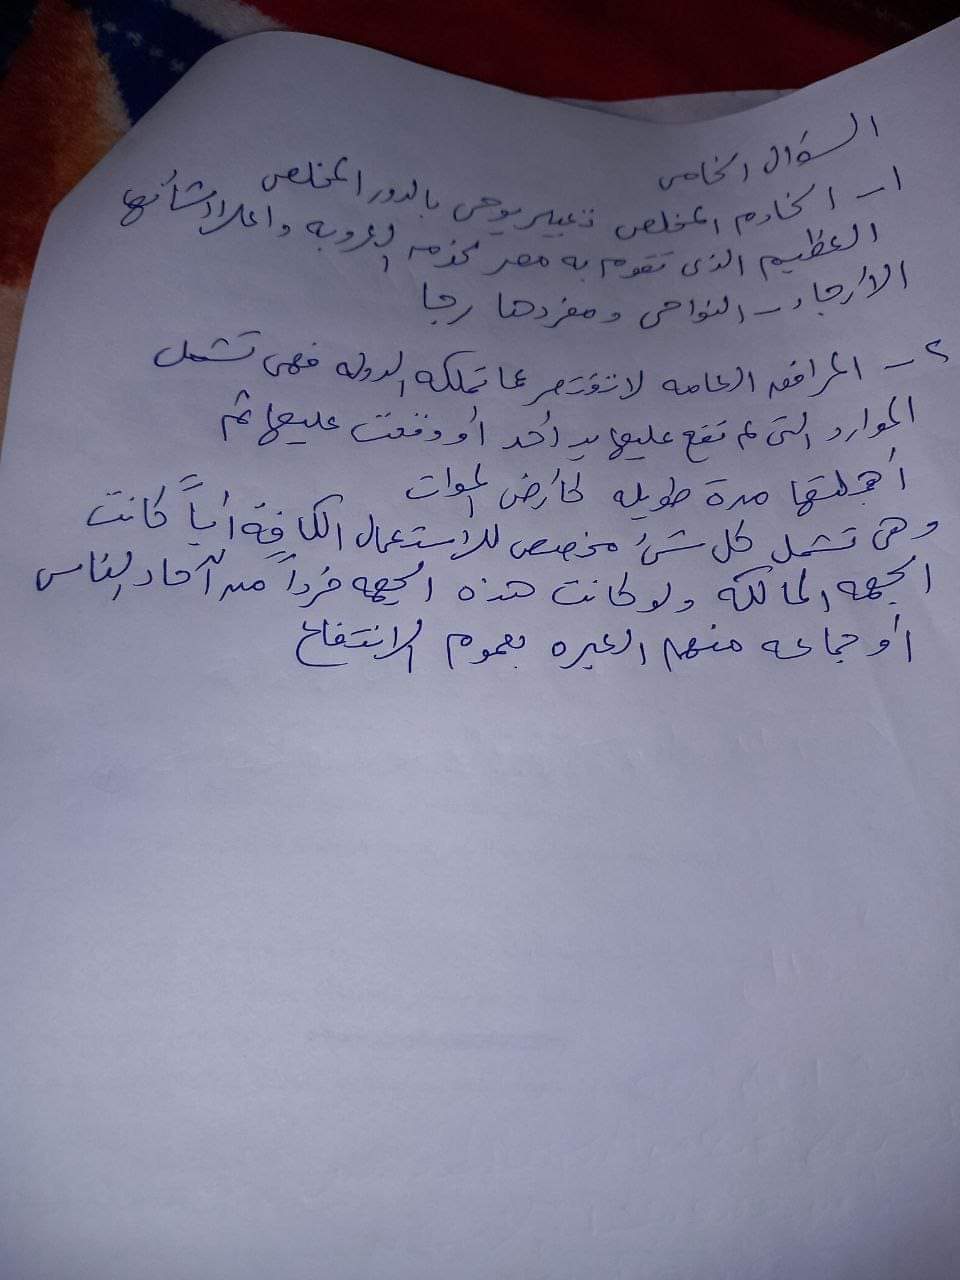 السؤال الخامس
١- الخادم المخلص تعبير يوحى بالدور المخلص
العظيم الذى تقوم به مصر لخدمه العروبه واعلاء شأنها
الأرجاء - النواحى ومفردها رجا
٢- المرافق العامه لا تقتصر عما تملكه الدوله فهى تشمل
الموارد التى لم تقع عليها يد أحد أو وقعت عليها ثم
أهملتها مدة طويله كأرض الموات
وهى تشمل كل شئ مخصص للاستعمال الكافة أياً كانت
الجهه المالكه ولو كانت هذه الجهه فرداً من آحاد الناس
أو جماعه منهم العبره بعموم الانتفاع